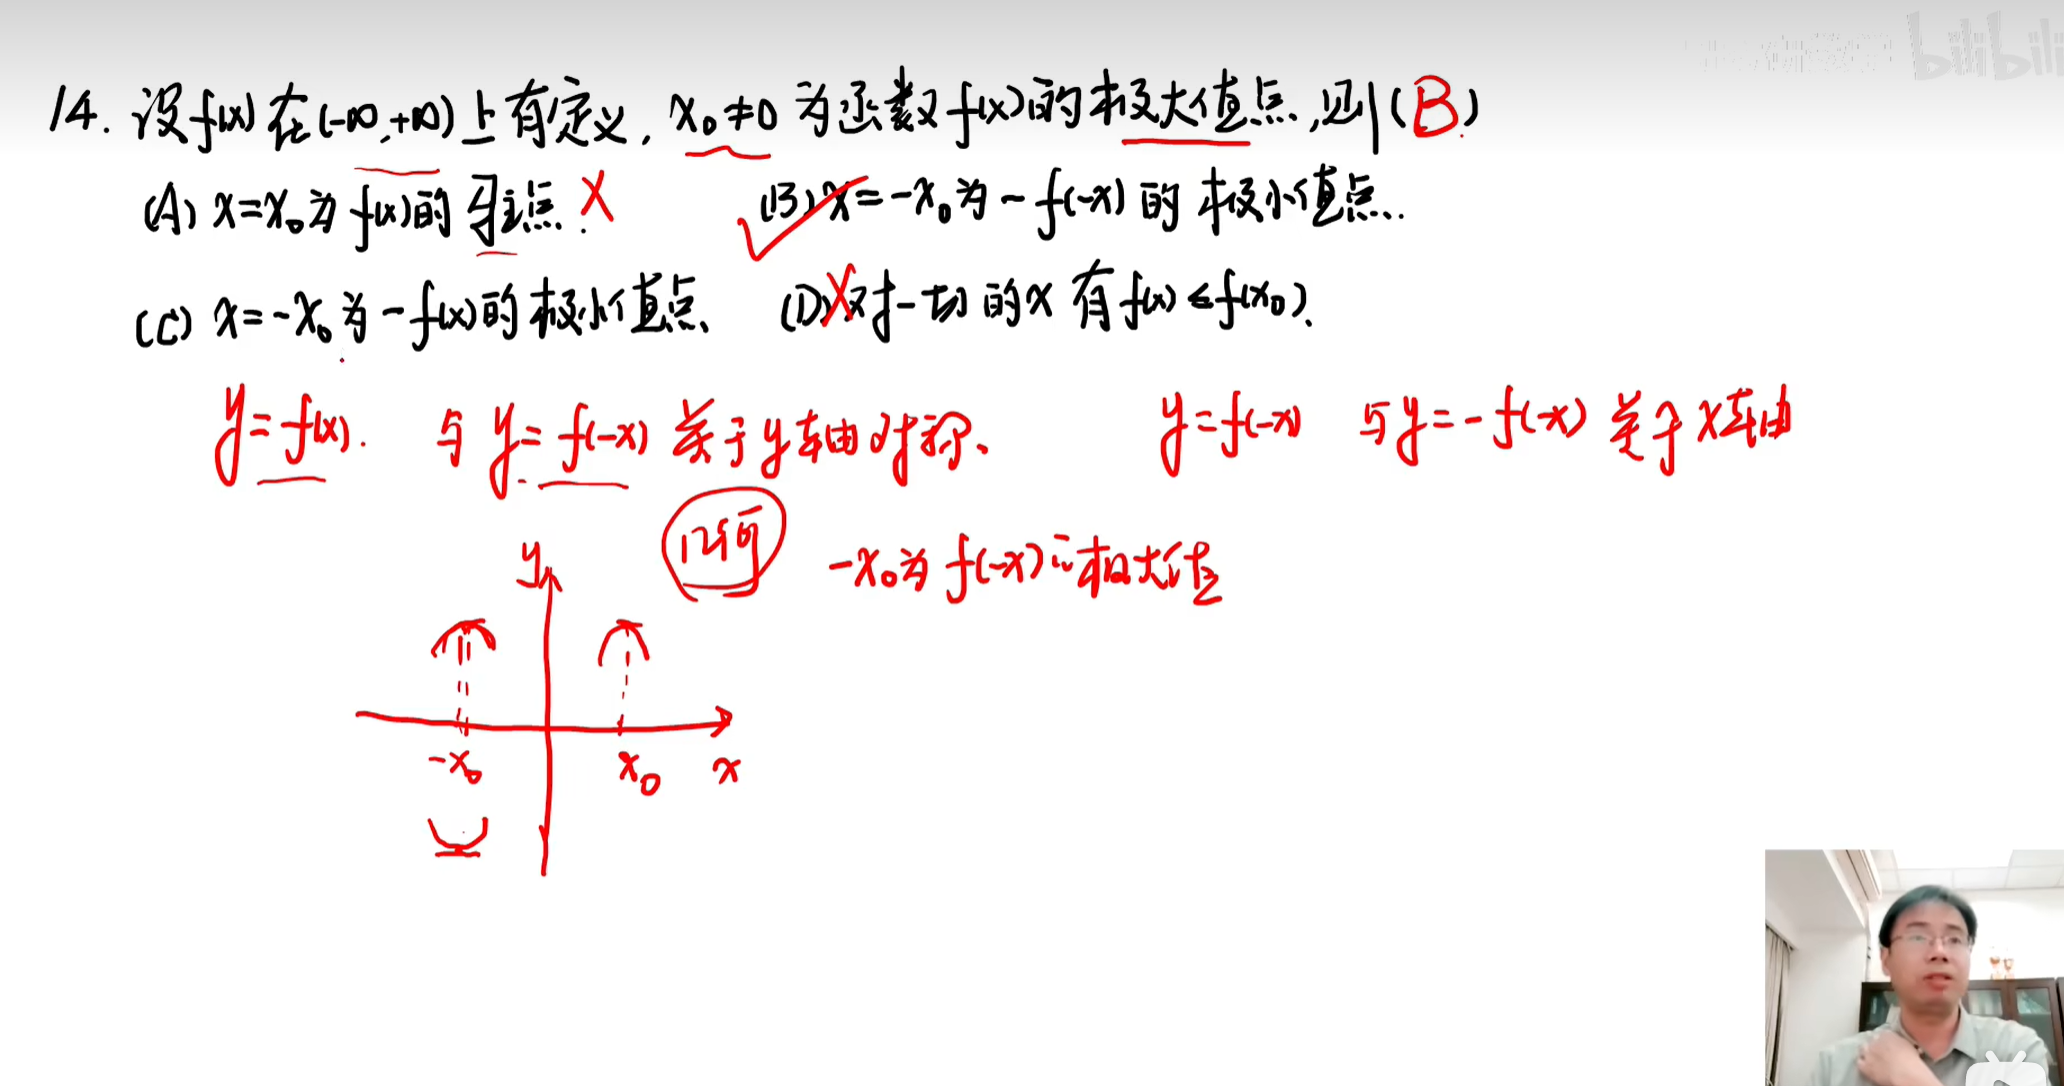 bilibili
14. 设f(x)在(-∞,+∞)上有定义, x₀≠0 为函数f(x)的极大值点,则(B)
(A) x=x₀为f(x)的驻点. X (B) x=-x₀为-f(-x)的极小值点.
(C) x=-x₀为-f(x)的极小值点. (D) X 对一切的x有f(x)≤f(x₀).
y=f(x). 与y=f(-x)关于y轴由对称. y=f(-x) 与y=-f(-x)关于x轴
几何 -x₀为f(-x)的极大值
y
-x₀ x₀ x